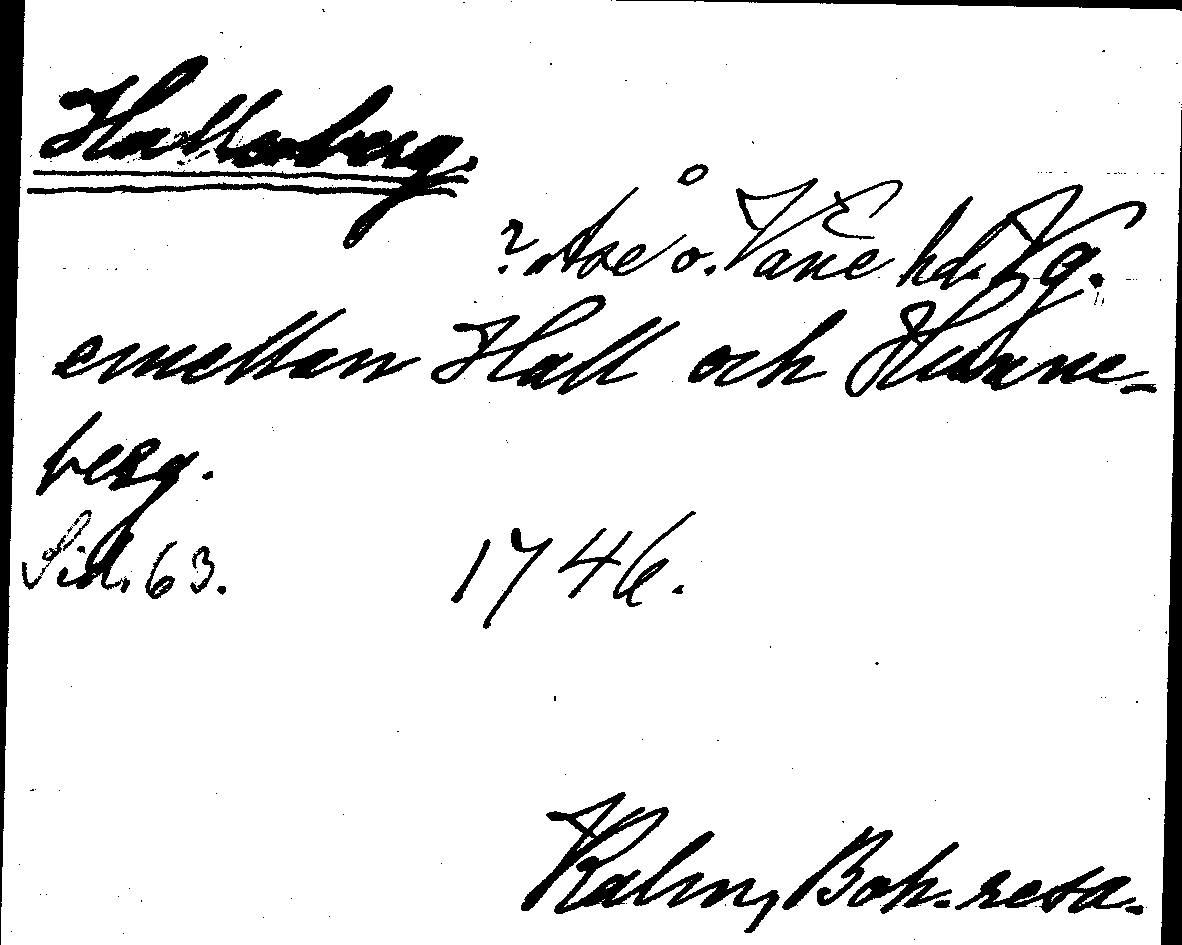 Halleberg.
? Åse o. Väne hd. Vg.
emellan Hall och Hunne-
berg.
Sid. 63. 1746.
Kalm, Boh. resa.